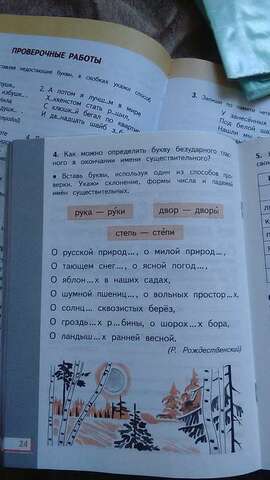 ПРОВЕРОЧНЫЕ РАБОТЫ
недостающие буквы, в скобках укажи способ
2. А потом я лучш...м в мире
Х...ккеистом стать р...шил,
С клюшк...й бегал по квартире
И дв...надцать шайб
3. Запиши по памяти
У занесённых
Под белой
Нашли мы
4. Как можно определять букву безударного глас-
ного в окончании имени существительного?
• Вставь буквы, используя один из способов про-
верки. Укажи склонение, формы числа и падежа
имён существительных.
рука — руки
двор — дворы
степь — степи
О русской природ..., о милой природ...,
О тающем снег..., о ясной погод...,
О яблон...х в наших садах,
О шумной пшениц..., о вольных простор...х,
О солнц... сквозистых берёз,
О гроздь...х р...бины, о шорох...х бора,
О ландыш...х ранней весной.
(Р. Рождественский)
24
5.